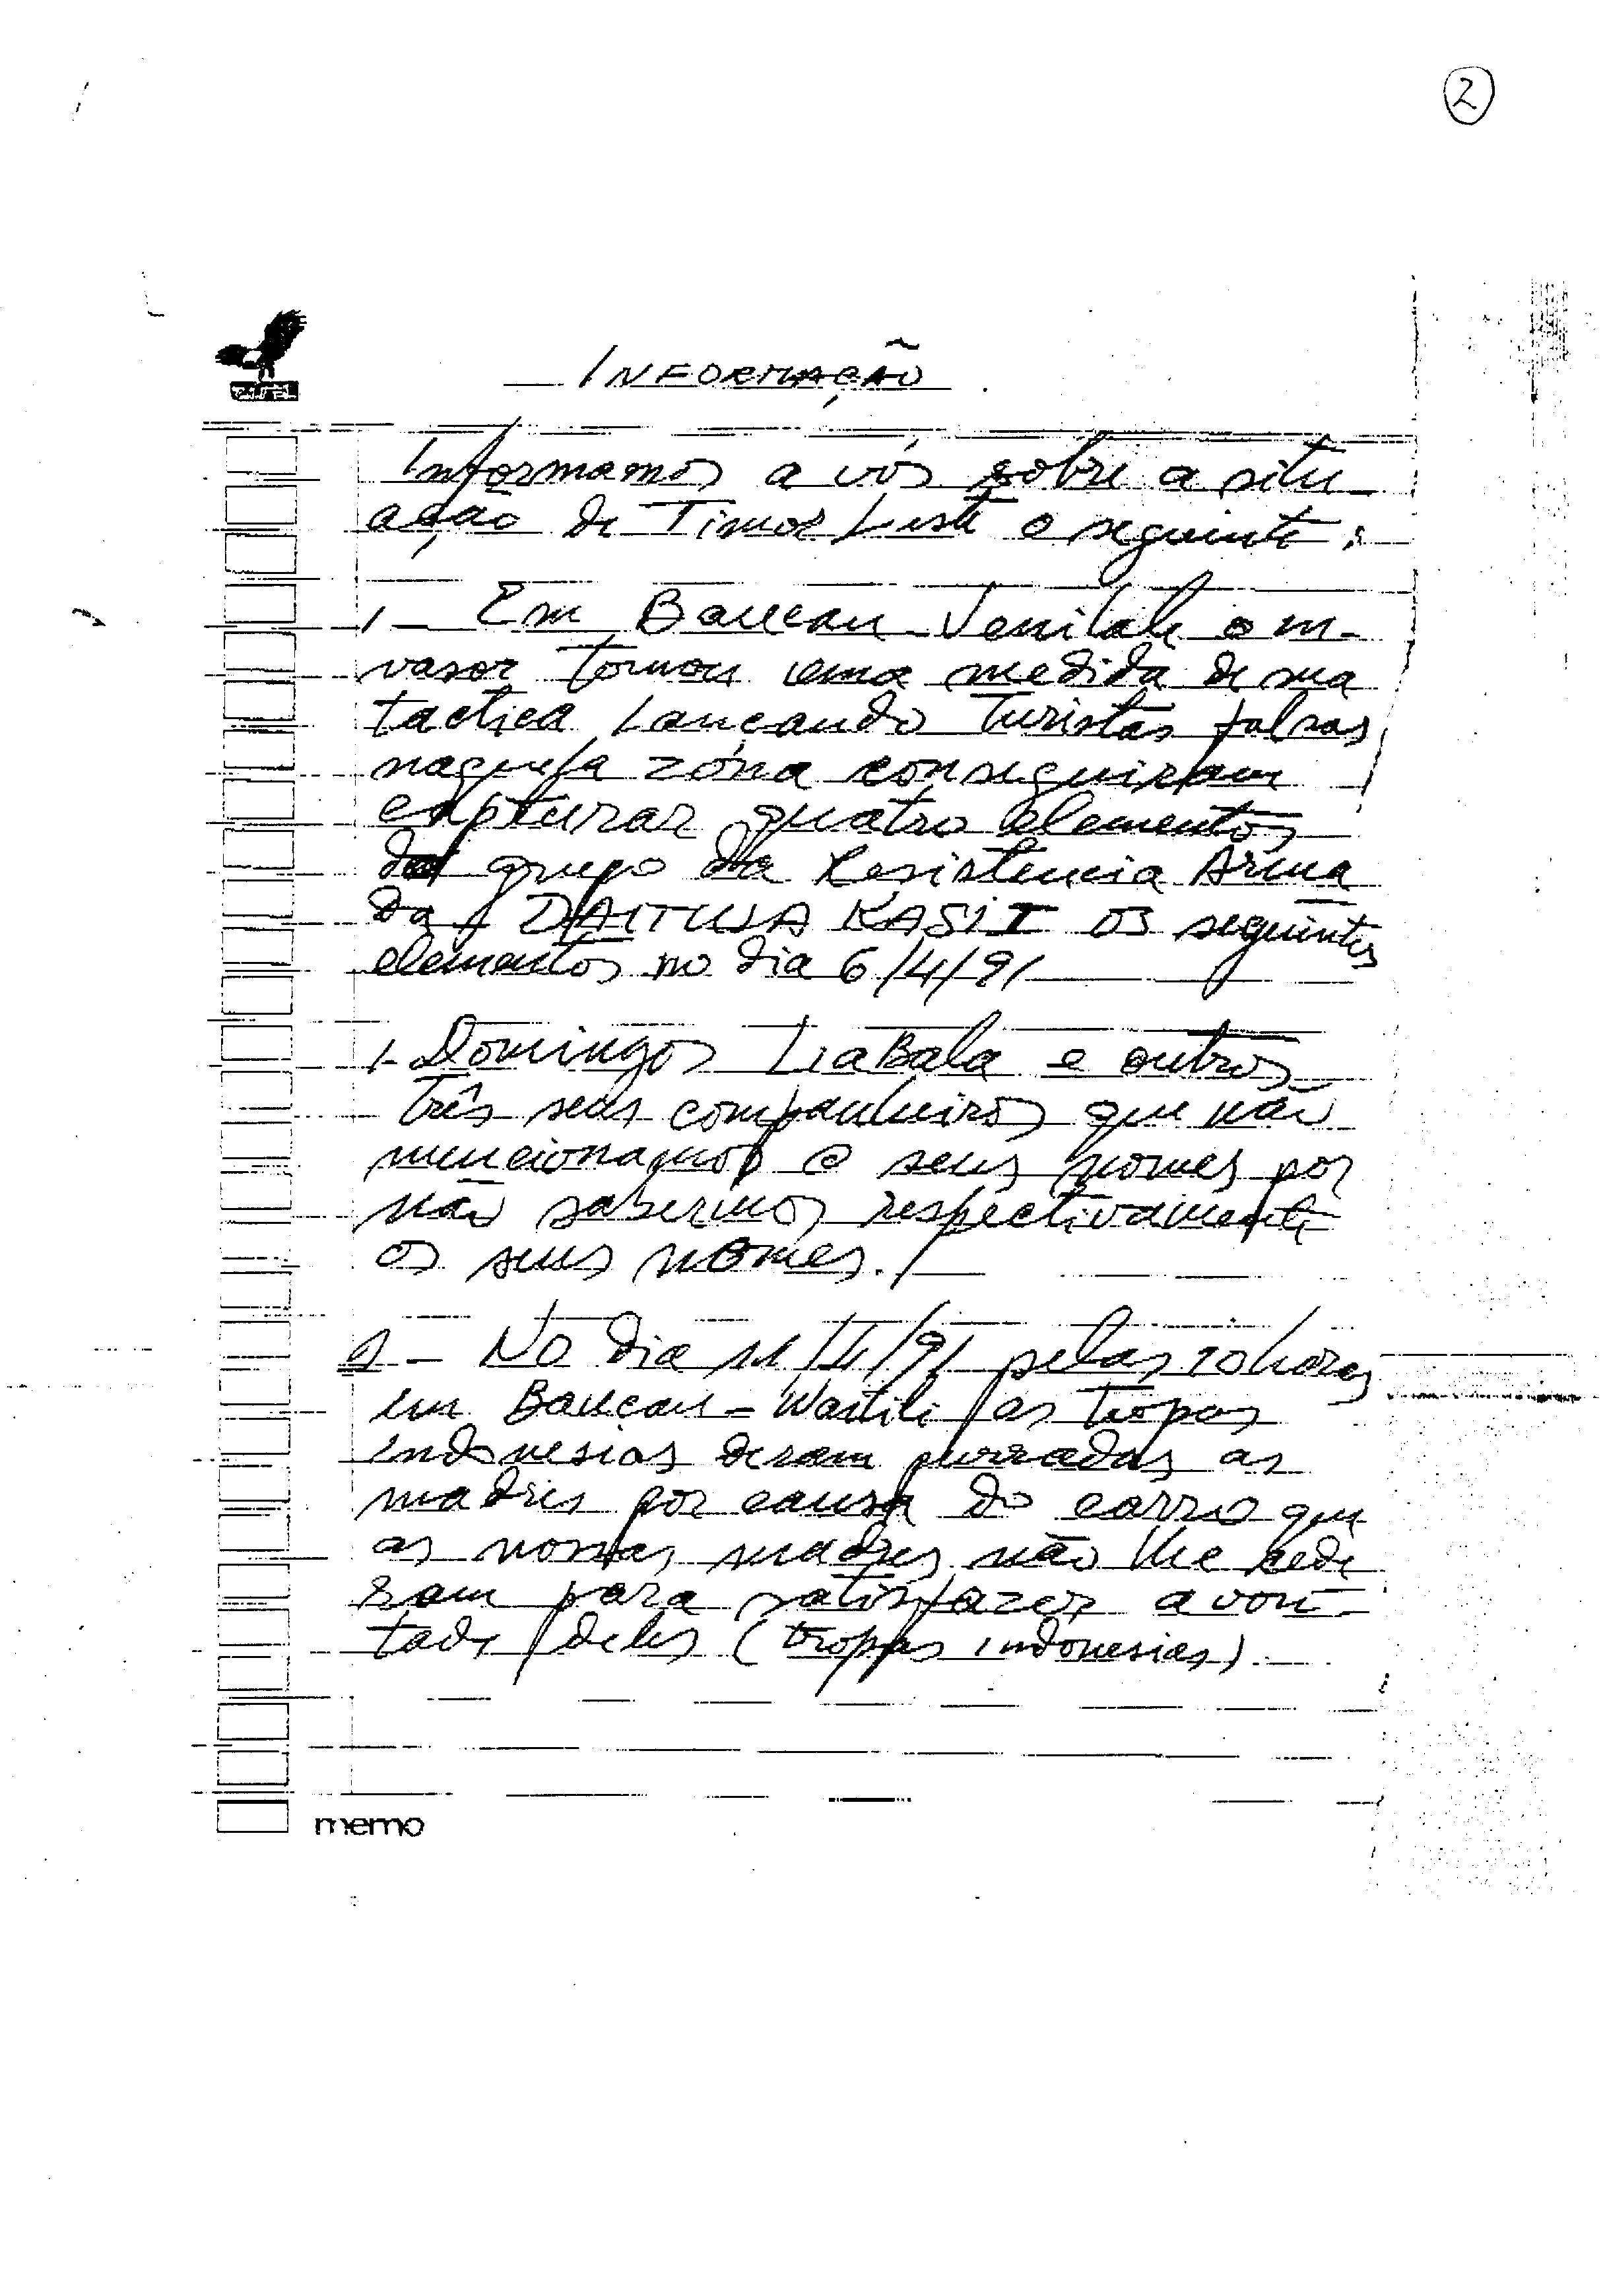 2
INFORMAÇÃO
Informamos a vós sobre a situ-
ação de Timor Leste o seguinte:
1- Em Baucau-Venilale o in-
vasor tomou uma medida de sua
tactica lançando turistas falsas
naquela zóna conseguiram
capturar quatro elementos
do grupo da Resistencia Arma
da, DAITULA KASIT os seguintes
elementos no dia 6/4/91
1- Domingos LiaBala e outros
três seus companheiros que não
mencionamos seus nomes por
não sabermos respectivamente
os seus nomes./
- No dia 11/4/91 pelas 10 horas
em Baucau-Wailili as tropas
indonesias deram purradas as
madres por causa do carro que
as nossas madres não lhe cede
ram para satisfazer a von-
tade deles (tropas indonesias).
memo